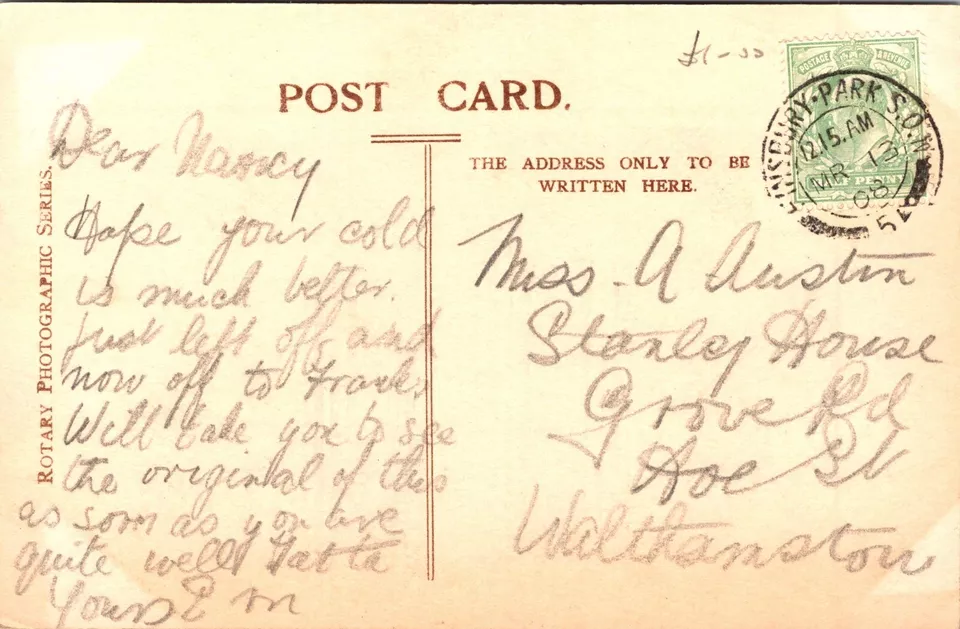 £1-00
POST CARD.
THE ADDRESS ONLY TO BE
WRITTEN HERE.
ROTARY PHOTOGRAPHIC SERIES.
POSTAGE & REVENUE
HALF PENNY
FINSBURY-PARK S.O.N.
12.15.AM
MR 13
08
54
Dear Nancy
Hope your cold
is much better.
Just left off and
now off to Franks
Will take you to see
the original of this
as soon as you are
quite well Tat ta
Yours E
Miss A Austin
Stanley House
Grove Rd
Hoe St
Walthamstow